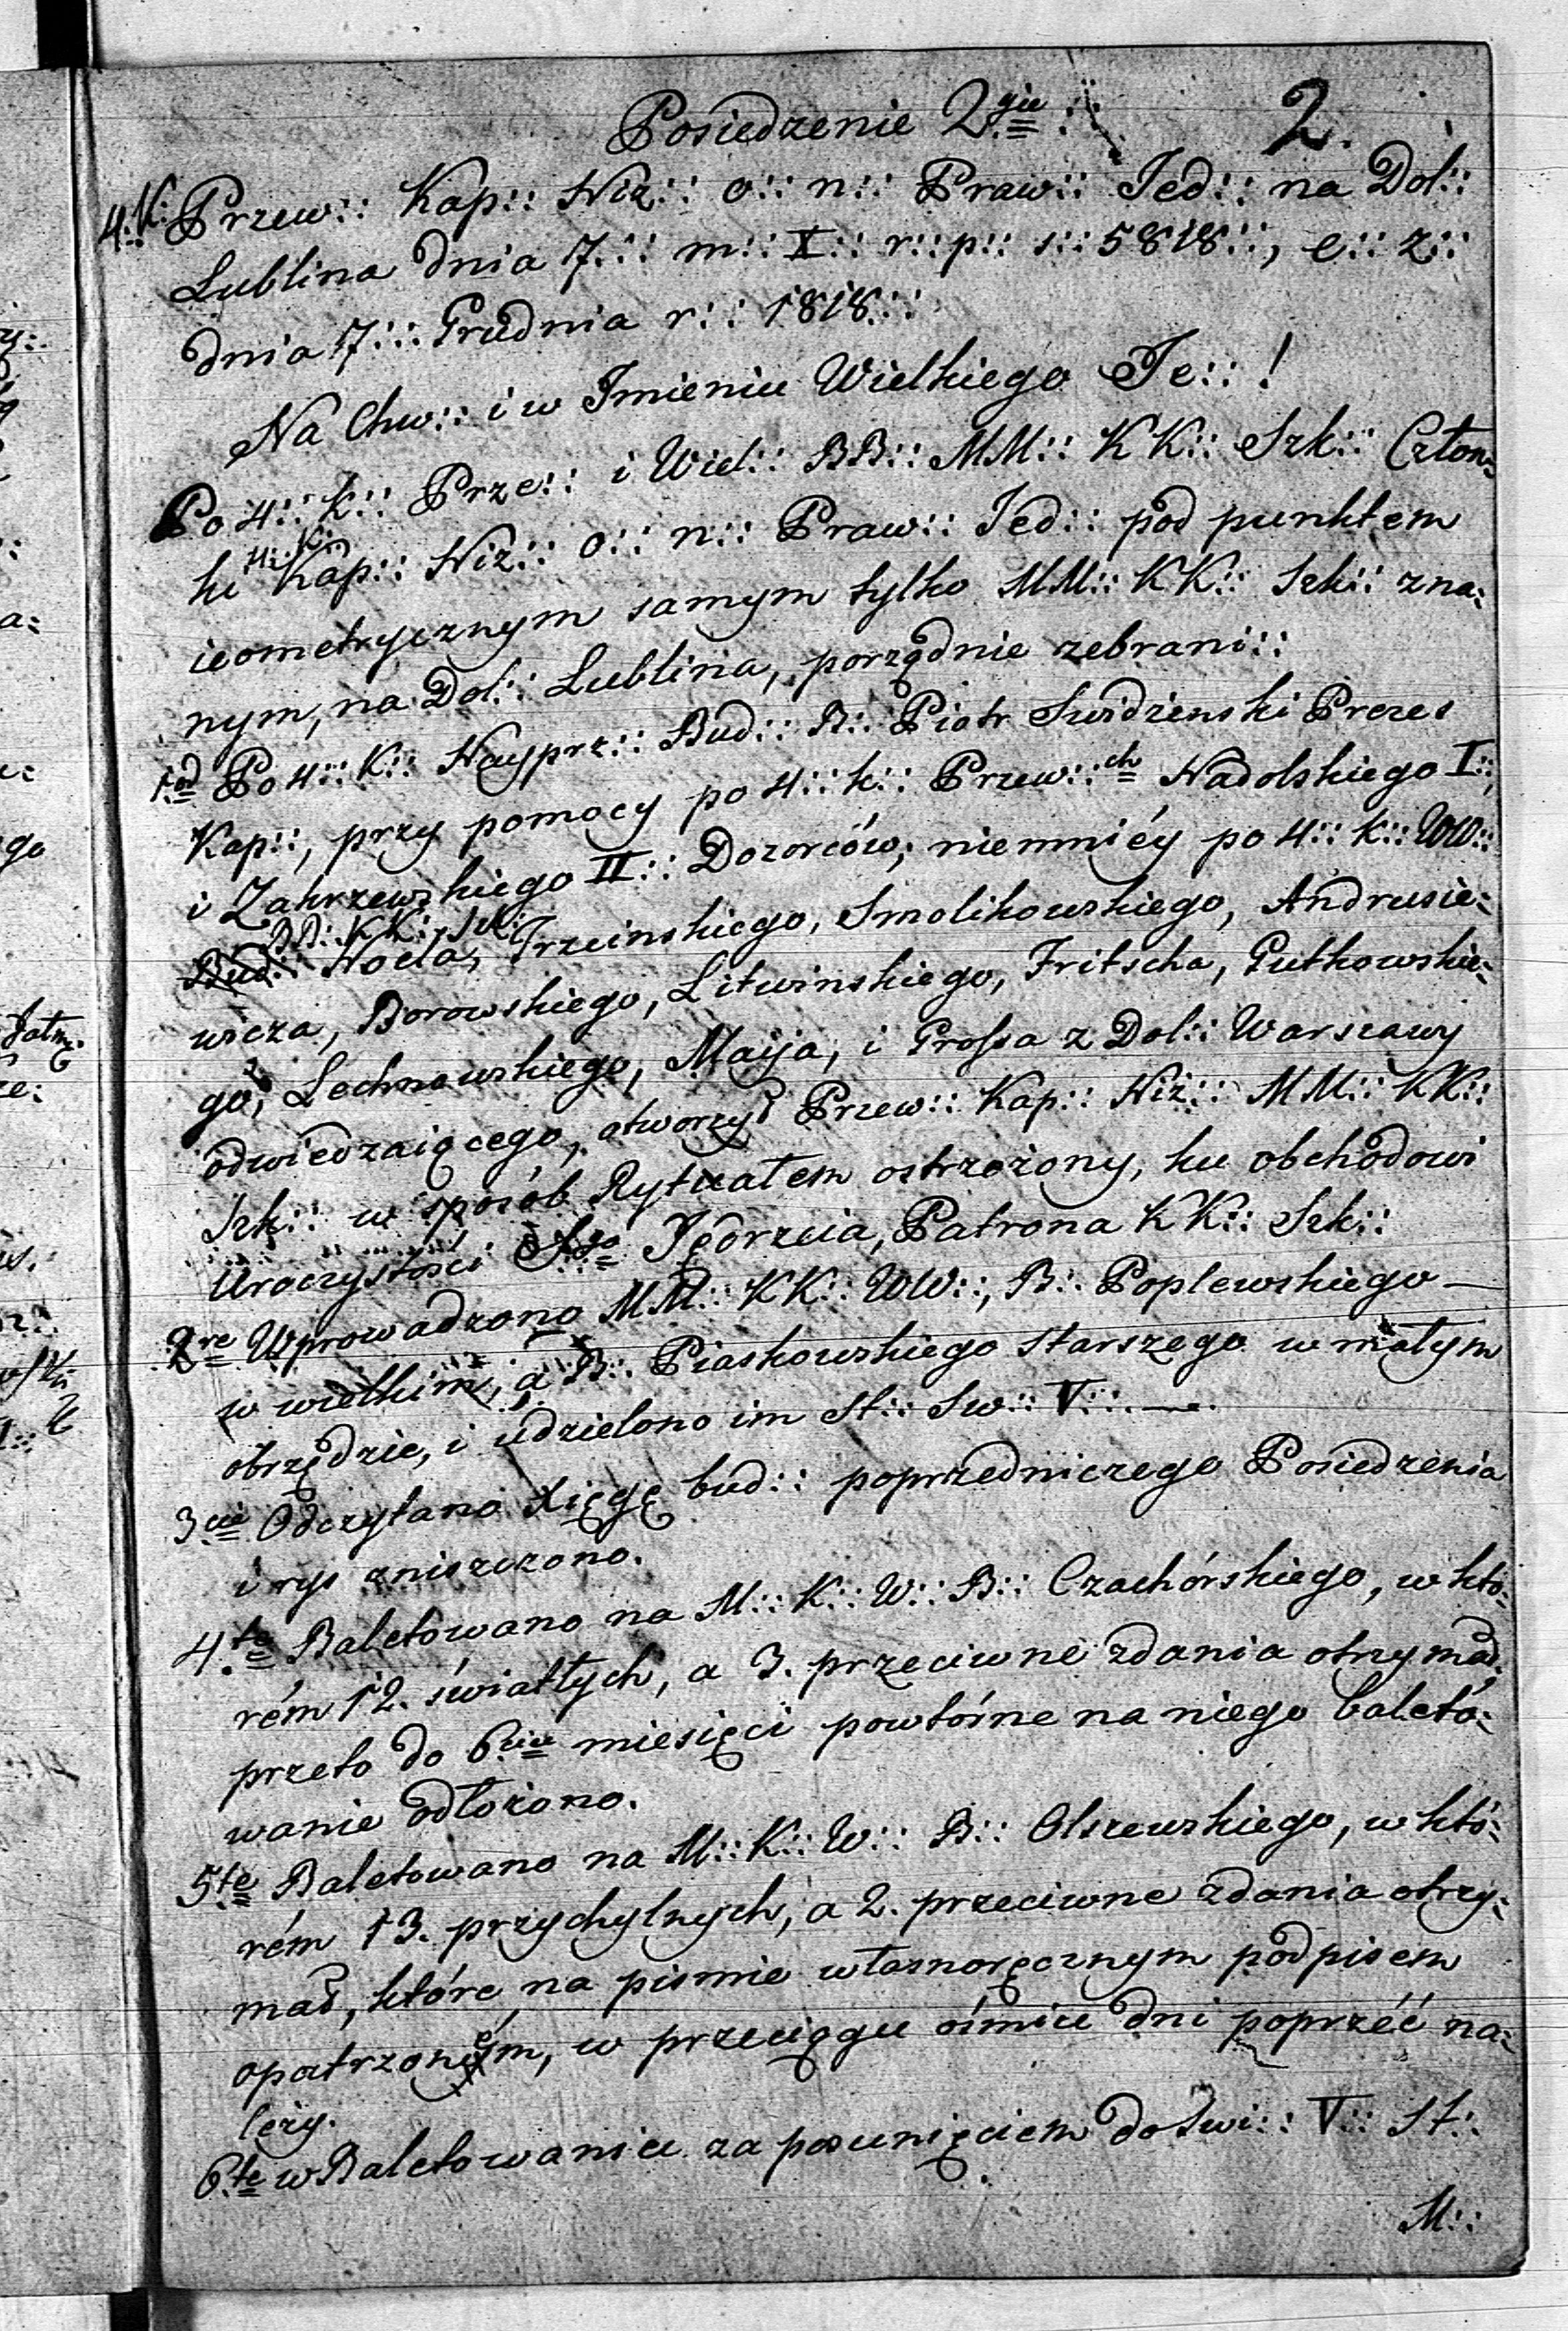 Posiedzenie 2gie :: 2.
4::K: Przew:: Kap:: Niż:: o:: n:: Praw:: Jed:: na Dol::
Lublina dnia 7::: m:: X:: r:: p:: s:: 5818::, e:: z::
dnia 7::: Grudnia r:: 1818:::
Na Chw:: i w Imieniu Wielkiego Je:: !
Po 4:: k:: Prze:: i Wiel:: BB:: MM:: KK:: Szk:: Człon=
ki 4:: K:: Kap:: Niż:: o:: n:: Praw:: Jed:: pod punktem
ieometrycznym samym tylko MM:: KK:: Szk:: zna=
nym, na Dol:: Lublina, porządnie zebrani::
1od Po 4:: K:: Nayprz:: Bud:: B:: Piotr Swidzenski Prezes
Kap::, przy pomocy po 4:: k:: Przew::ch Nadolskiego I::,
i Zakrzewskiego II:: Dozorców; niemniéy po 4:: k:: WW::
Bud:: BB:: KK:: Szk: Noela, Trzcinskiego, Smolikowskiego, Andrusie=
wicza, Borowskiego, Litwinskiego, Fritscha, Gutkowskie=
go, Lechnowskiego, Maija, i Grossa z Dol:: Warszawy
odwiedzaiącego, otworzył Przew:: Kap:: Niż:: MM:: KK::
Szk:: w sposób Rytuałem ostrzeżony, ku obchodowi
Uroczystości Sgo Jędrzeia, Patrona KK:: Szk::
2re Wprowadzono MM:: KK:: WW::, B:: Poplewskiego —
w wielkim, a B:: Piaskowskiego starszego w małym
obrzędzie, i udzielono im St:: Sw:: V:::.—.
3cie Odczytano Xięgę bud:: poprzedniczego Posiedzenia
i rys zniszczono.
4.te Baletowano na M:: K:: W:: B:: Czachórskiego, w któ=
rém 12. światłych, a 3. przeciwne zdania otrzymał,
przeto do 6ciu miesięci powtórne na niego baletó=
wanie odłożono.
5te Baletowano na M:: K:: W:: B:: Olszewskiego, w któ=
rém 13. przychylnych, a 2. przeciwne zdania otrzy=
mał, które na pismie własnoręcznym podpisem
opatrzoném, w przeciągu ośmiu dni poprzéć na=
leży.
6.te w Baletowaniu za posunięciem do Swi:: V:: St::
M::